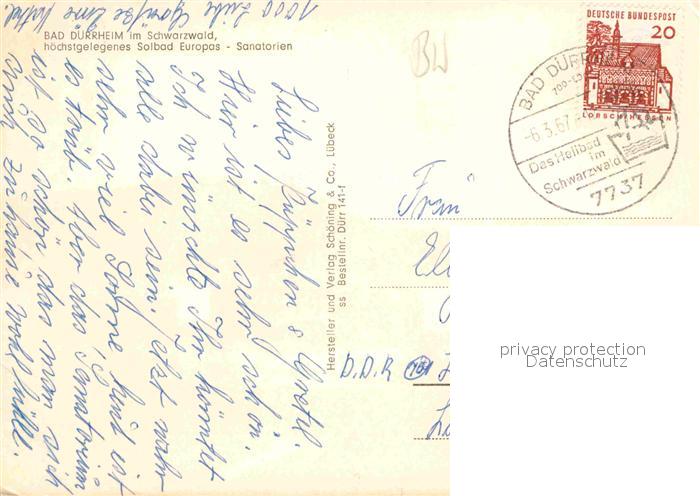 1000 Liebe Grüße Eure
BAD DÜRRHEIM im Schwarzwald,
höchstgelegenes Solbad Europas - Sanatorien
BW
Liebes Püppchen &
Hier ist es sehr schön.
Ich wünschte Ihr könntet
alle dabei sein. Jetzt
sehr viel Sonne und ist
es trüb. Hier das Sanatorium
ist so schön das man sich
auch zu Hause wohl fühlt.
Hersteller und Verlag Schöning & Co., Lübeck
ss Bestellnr. Dürr 141-f
DEUTSCHE BUNDESPOST
20
LORSCH/HESSEN
BAD DÜRRHEIM
-6.3.67
Das Heilbad
im
Schwarzwald
7737
Frau
D.D.R.
privacy protection
Datenschutz